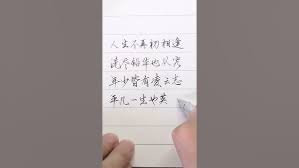 人生不再初相逢
洗尽铅华也从容
年少皆有凌云志
平凡一生也英